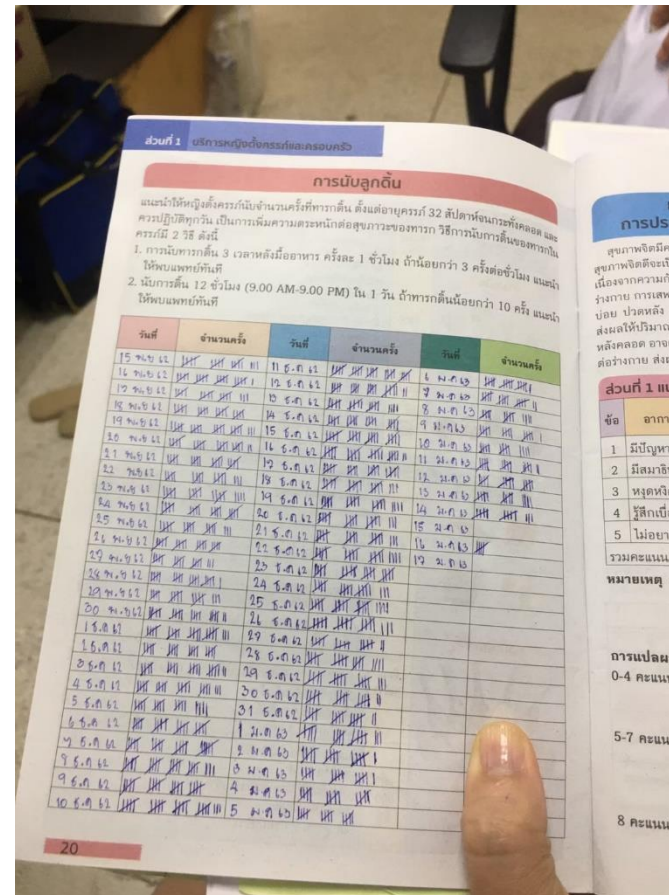 ส่วนที่ 1 บริการหญิงตั้งครรภ์และครอบครัว
การนับลูกดิ้น
แนะนำให้หญิงตั้งครรภ์นับจำนวนครั้งที่ทารกดิ้น ตั้งแต่อายุครรภ์ 32 สัปดาห์จนกระทั่งคลอด และ
ควรปฏิบัติทุกวัน เป็นการเพิ่มความตระหนักต่อสุขภาวะของทารก วิธีการนับการดิ้นของทารกใน
ครรภ์มี 2 วิธี ดังนี้
1. การนับทารกดิ้น 3 เวลาหลังมื้ออาหาร ครั้งละ 1 ชั่วโมง ถ้าน้อยกว่า 3 ครั้งต่อชั่วโมง แนะนำ
ให้พบแพทย์ทันที
2. นับการดิ้น 12 ชั่วโมง (9.00 AM-9.00 PM) ใน 1 วัน ถ้าทารกดิ้นน้อยกว่า 10 ครั้ง แนะนำ
ให้พบแพทย์ทันที
วันที่ จำนวนครั้ง วันที่ จำนวนครั้ง วันที่ จำนวนครั้ง
15 พ.ย 62 11 ธ.ค 62 6 ม.ค 63
16 พ.ย 62 12 ธ.ค 62 7 ม.ค 63
17 พ.ย 62 13 ธ.ค 62 8 ม.ค 63
18 พ.ย 62 14 ธ.ค 62 9 ม.ค 63
19 พ.ย 62 15 ธ.ค 62 10 ม.ค 63
20 พ.ย 62 16 ธ.ค 62 11 ม.ค 63
21 พ.ย 62 17 ธ.ค 62 12 ม.ค 63
22 พ.ย 62 18 ธ.ค 62 13 ม.ค 63
23 พ.ย 62 19 ธ.ค 62 14 ม.ค 63
24 พ.ย 62 20 ธ.ค 62 15 ม.ค 63
25 พ.ย 62 21 ธ.ค 62 16 ม.ค 63
26 พ.ย 62 22 ธ.ค 62 17 ม.ค 63
27 พ.ย 62 23 ธ.ค 62
28 พ.ย 62 24 ธ.ค 62
29 พ.ย 62 25 ธ.ค 62
30 พ.ย 62 26 ธ.ค 62
1 ธ.ค 62 27 ธ.ค 62
2 ธ.ค 62 28 ธ.ค 62
3 ธ.ค 62 29 ธ.ค 62
4 ธ.ค 62 30 ธ.ค 62
5 ธ.ค 62 31 ธ.ค 62
6 ธ.ค 62 1 ม.ค 63
7 ธ.ค 62 2 ม.ค 63
8 ธ.ค 62 3 ม.ค 63
9 ธ.ค 62 4 ม.ค 63
10 ธ.ค 62 5 ม.ค 63
20
การประ
สุขภาพจิตมีค
สุขภาพจิตดีจะเป็
เนื่องจากความกั
ร่างกาย การเสพ
บ่อย ปวดหลัง
ส่งผลให้ปริมาณ
หลังคลอด อาจ
ต่อร่างกาย ส่งผ
ส่วนที่ 1 แบ
ข้อ อากา
1 มีปัญหา
2 มีสมาธิ
3 หงุดหงิ
4 รู้สึกเบื่
5 ไม่อยา
รวมคะแนน
หมายเหตุ
การแปลผ
0-4 คะแนน
5-7 คะแน
8 คะแนน